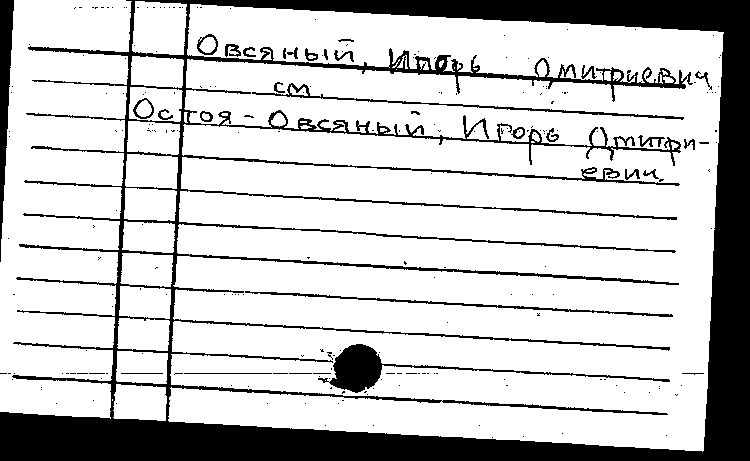 Овсяный, Игорь Дмитриевич
см.
Остоя - Овсяный, Игорь Дмитри-
евич